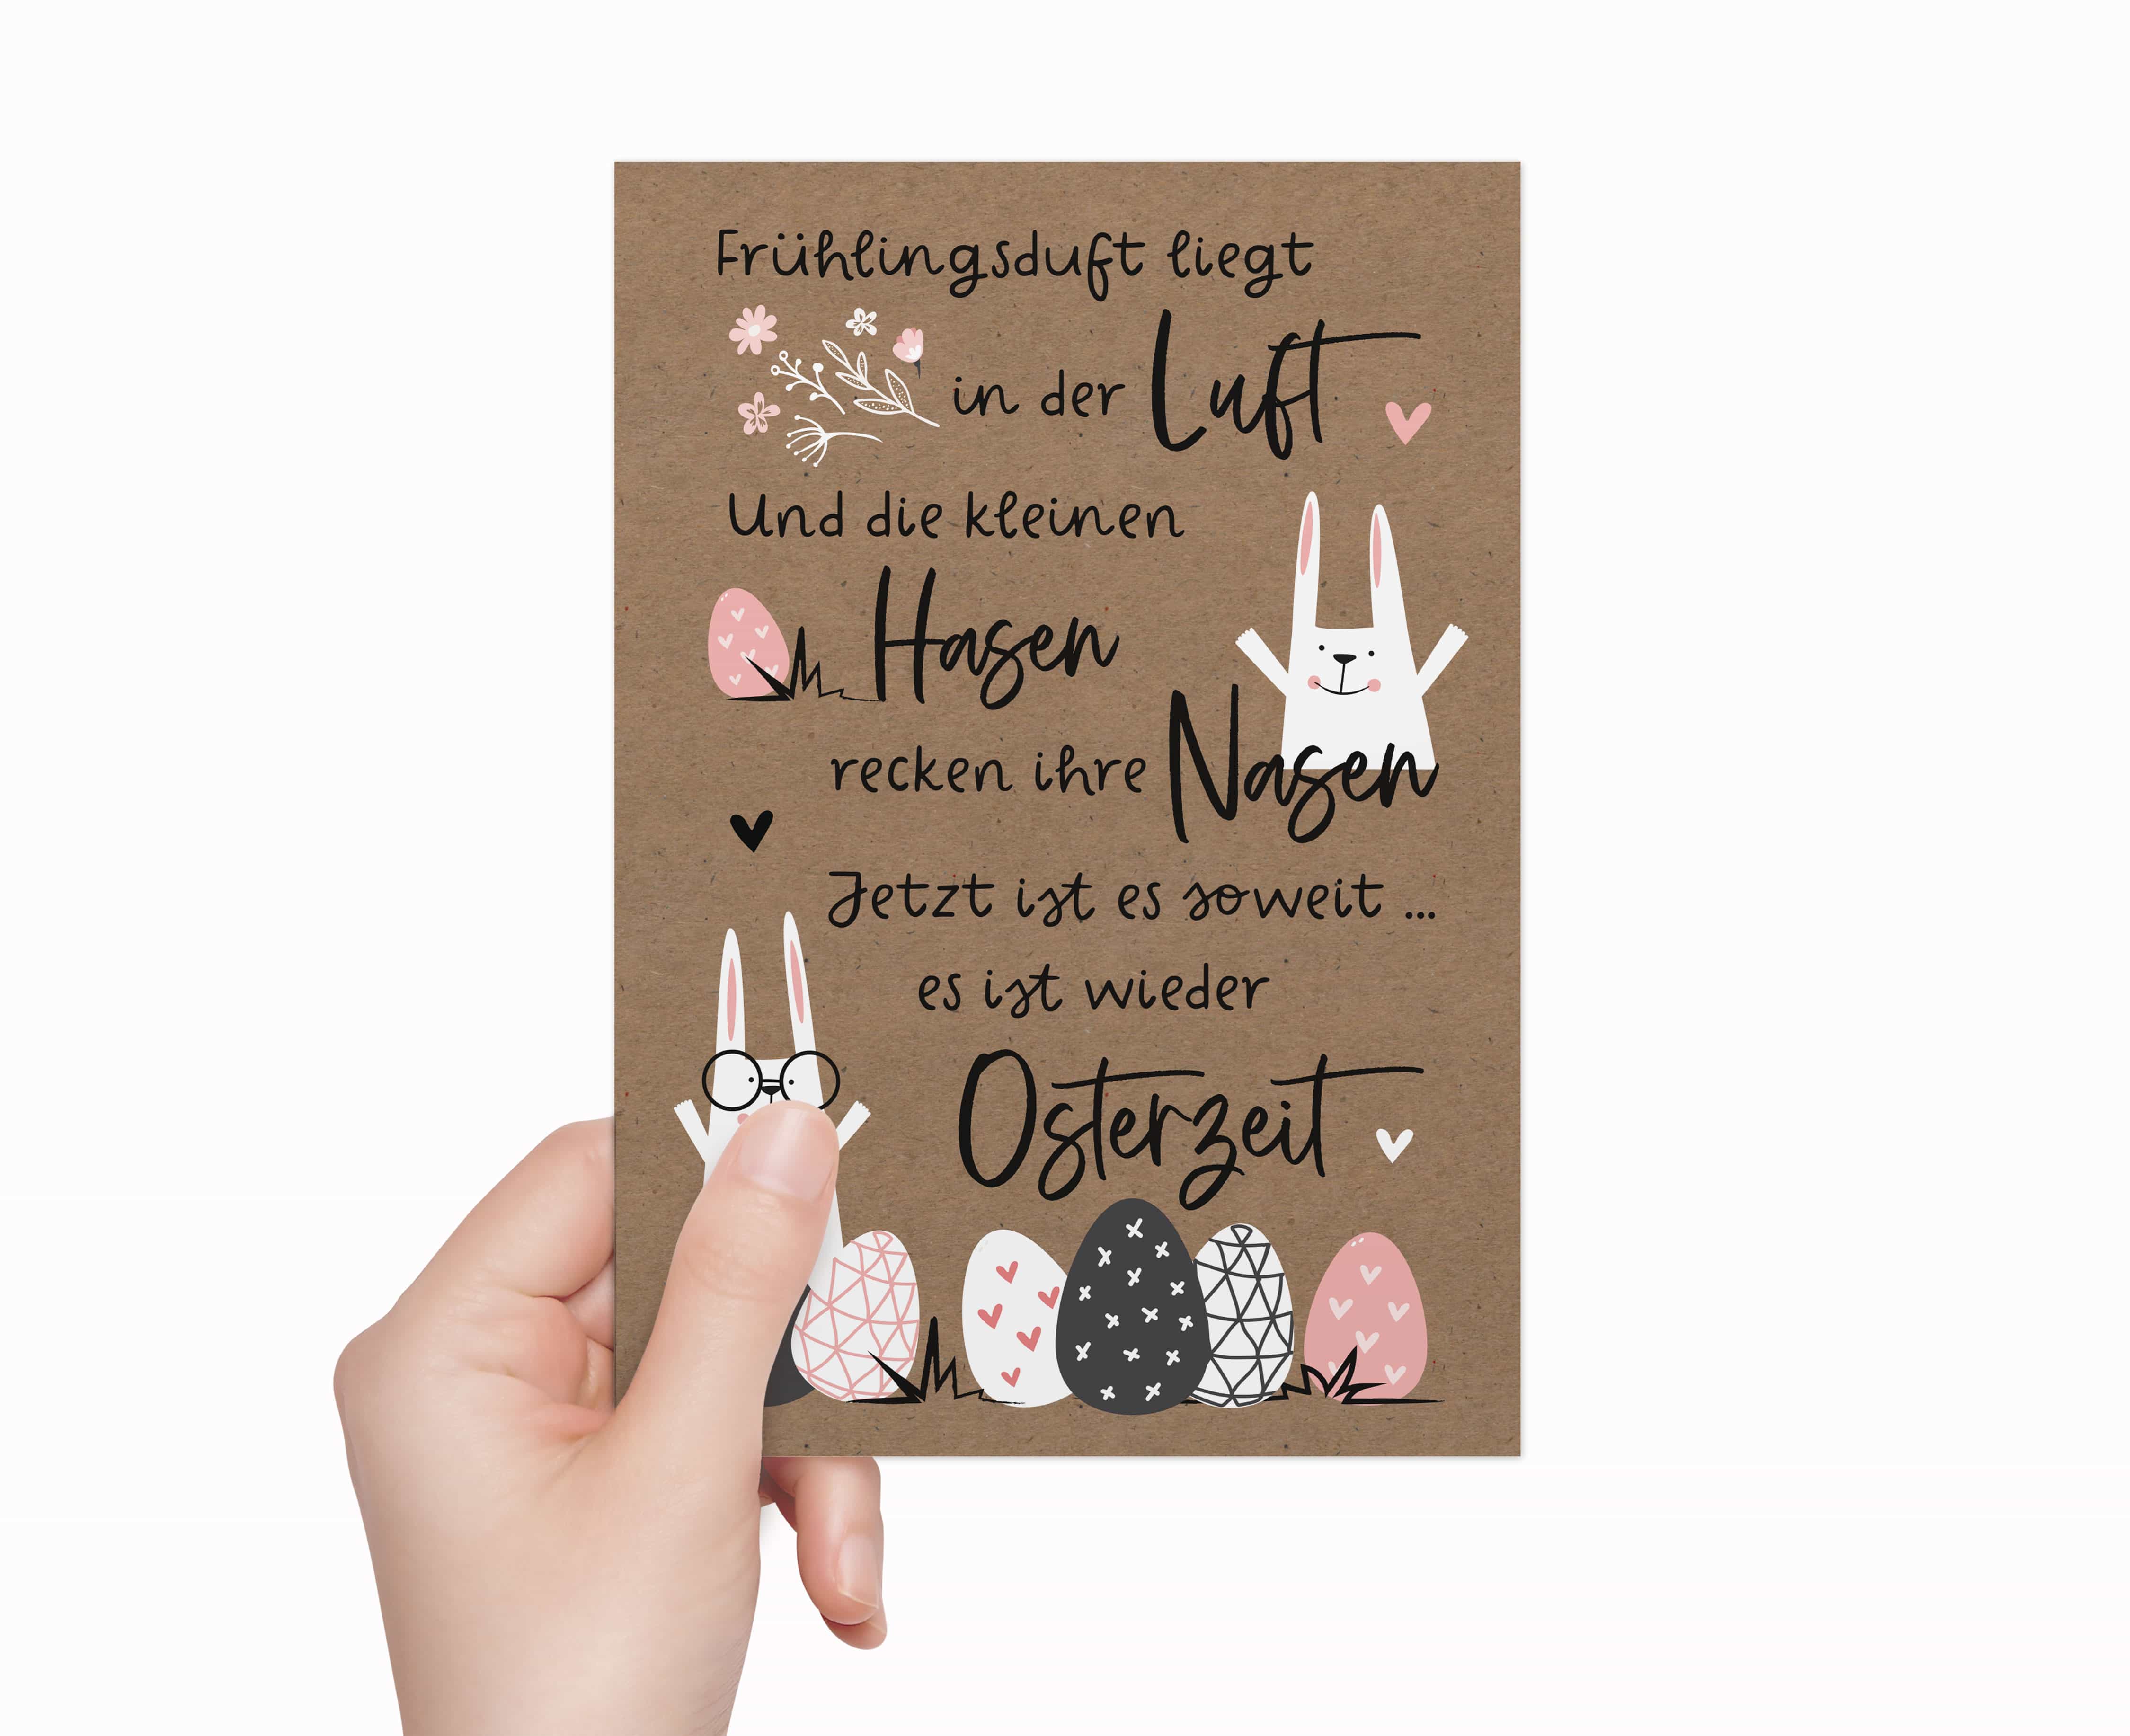 Frühlingsduft liegt
in der Luft
Und die kleinen
Hasen
recken ihre Nasen
Jetzt ist es soweit ...
es ist wieder
Osterzeit